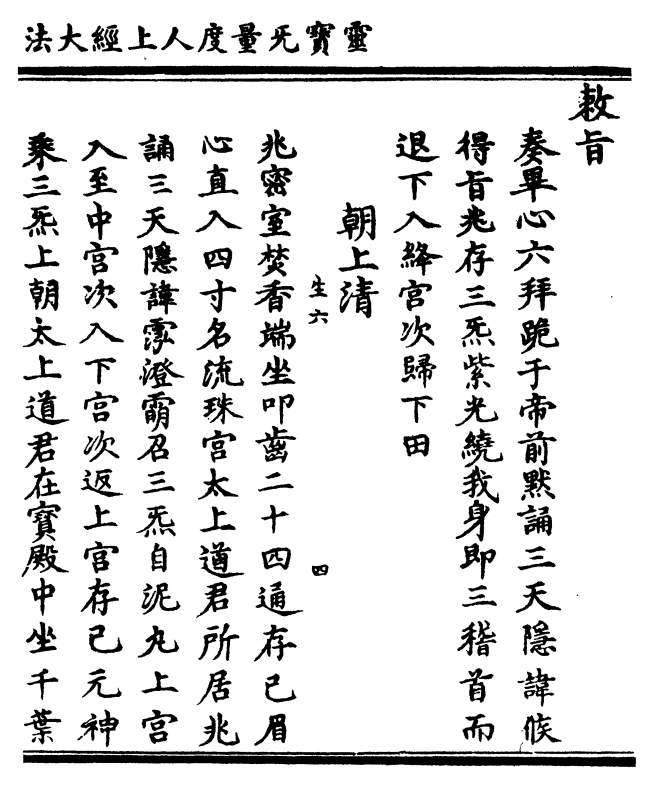 靈寶旡量度人上經大法
敕旨
奏畢心六拜跪于帝前默誦三天隱諱候
得旨兆存三炁紫光繞我身即三稽首而
退下入絳宮次歸下田
朝上清
生六
四
兆密室焚香端坐叩齒二十四通存已眉
心直入四寸名流珠宮太上道君所居兆
誦三天隱諱霐澄霸召三炁自泥丸上宮
入至中宮次入下宮次返上宮存已元神
乘三炁上朝太上道君在寶殿中坐千葉